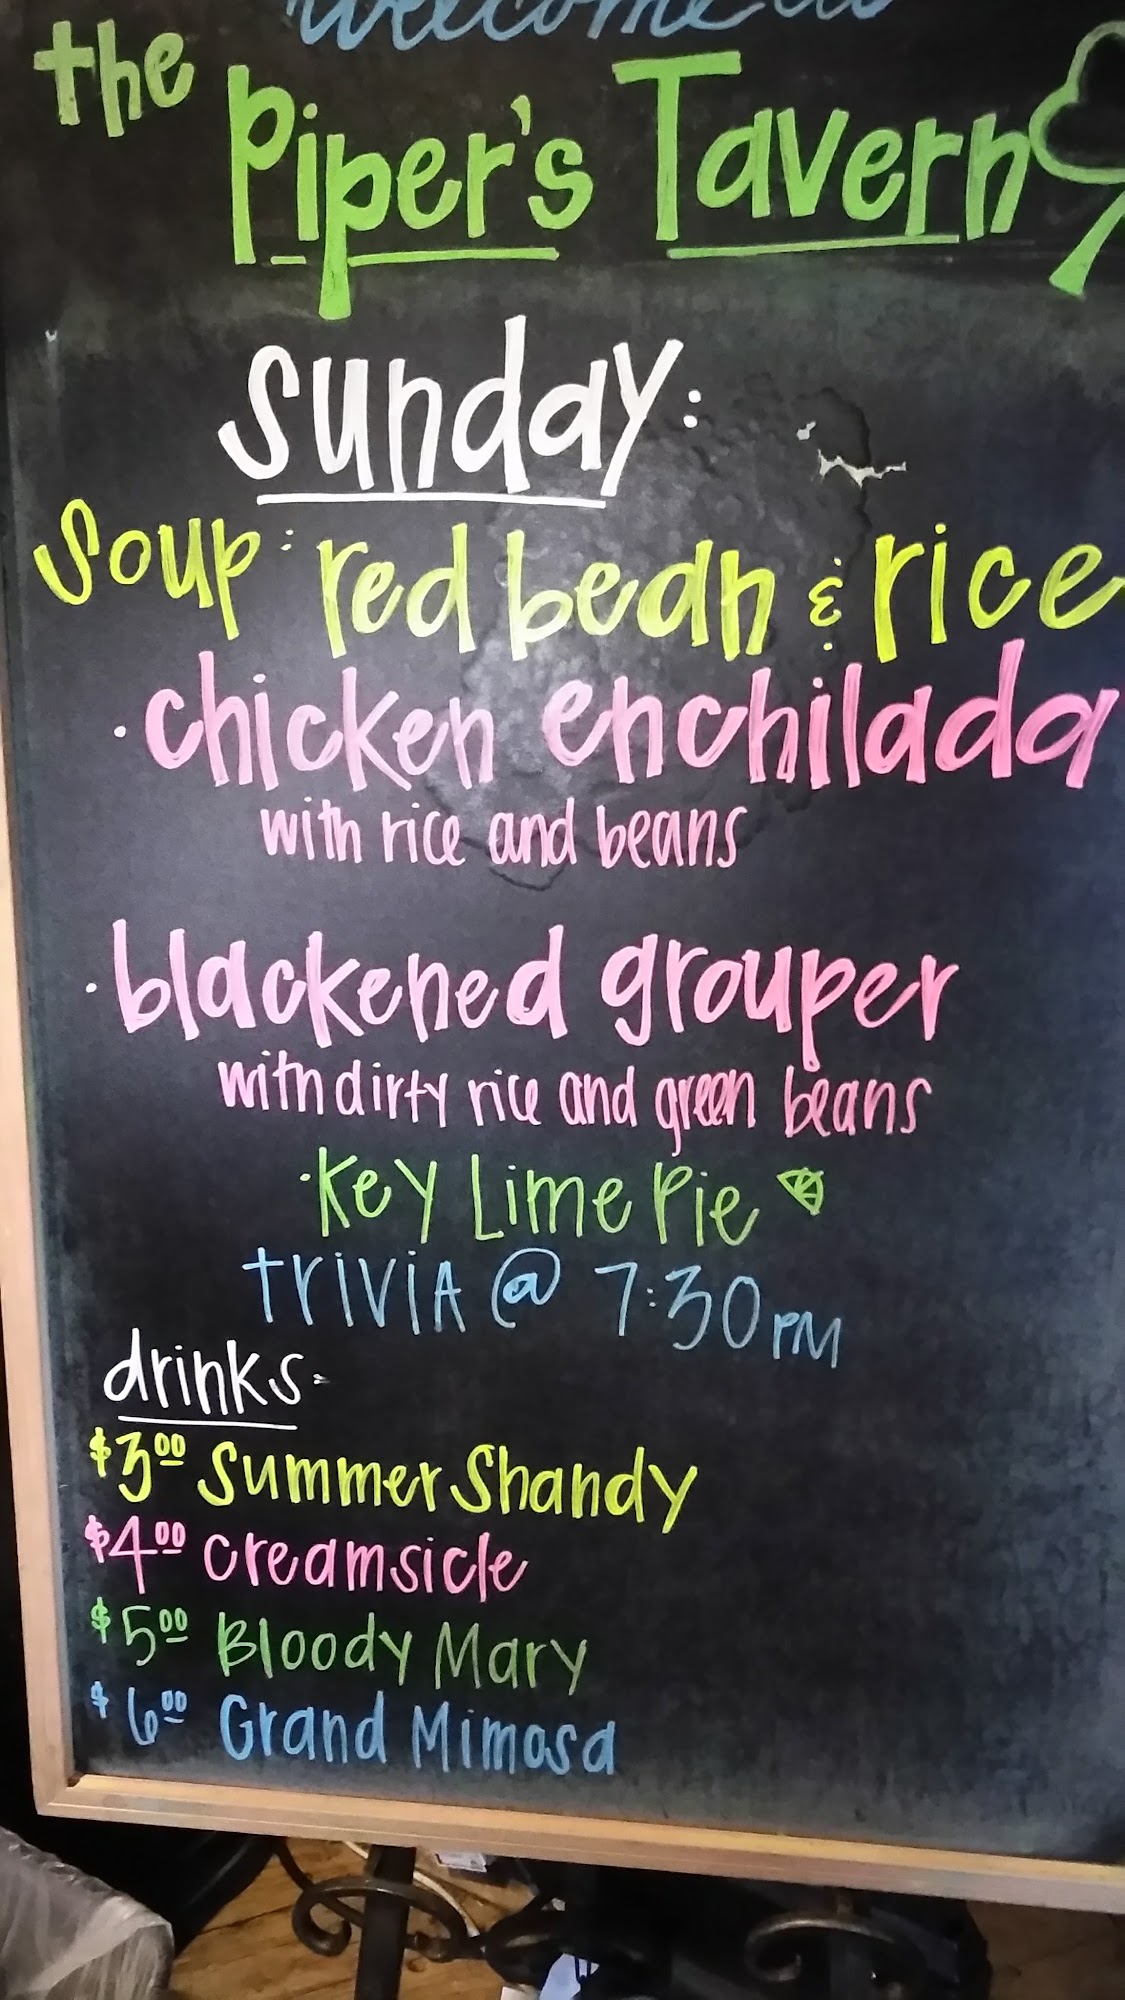 welcome to
the Piper's Tavern
Sunday:
Soup: red bean & rice
· chicken enchilada
with rice and beans
· blackened grouper
with dirty rice and green beans
· Key Lime Pie
trivia @ 7:30 PM
drinks:
$3.00 Summer Shandy
$4.00 Creamsicle
$5.00 Bloody Mary
$6.00 Grand Mimosa